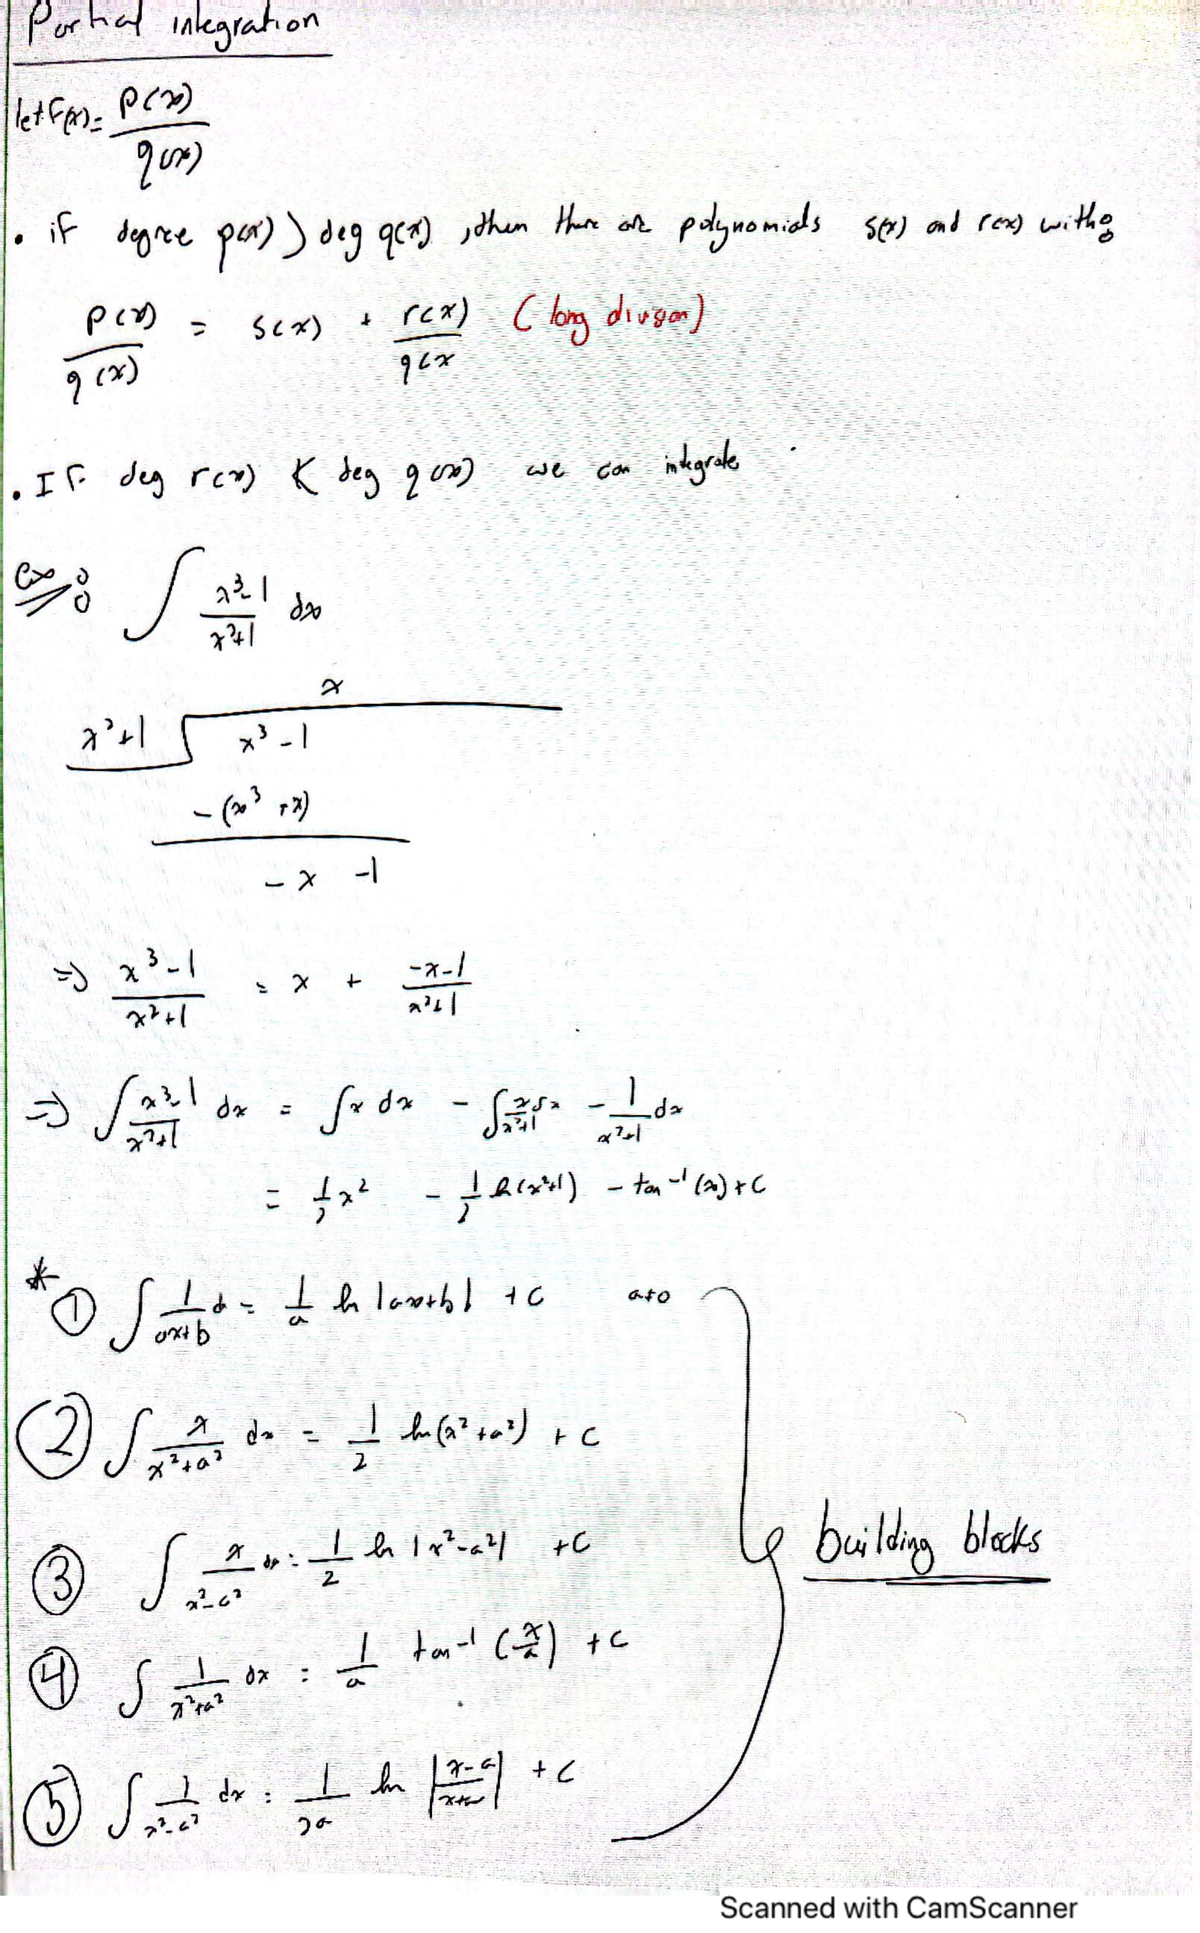 Partial integration
let F(x) = p(x)/q(x)
• if degree p(x) > deg q(x), then there are polynomials s(x) and r(x) with:
p(x)/q(x) = s(x) + r(x)/q(x (long division)
• If deg r(x) < deg q(x) we can integrate
Ex: ∫ x³-1/x²+1 dx
x
x²+1 x³-1
-(x³+x)
-x -1
=> x³-1/x²+1 = x + -x-1/x²+1
=> ∫ x³-1/x²+1 dx = ∫x dx - ∫ x/x²+1 dx - 1/x²+1 dx
= 1/2 x² - 1/2 ln(x²+1) - tan⁻¹(x)+C
* ① ∫ 1/ax+b d = 1/a ln|ax+b| + C a≠0
② ∫ x/x²+a² dx = 1/2 ln(x²+a²) + C
③ ∫ x/x²-a² dx = 1/2 ln|x²-a²| + C
building blocks
④ ∫ 1/x²+a² dx = 1/a tan⁻¹(x/a) + C
⑤ ∫ 1/x²-a² dx = 1/2a ln|x-a/x+a| + C
Scanned with CamScanner